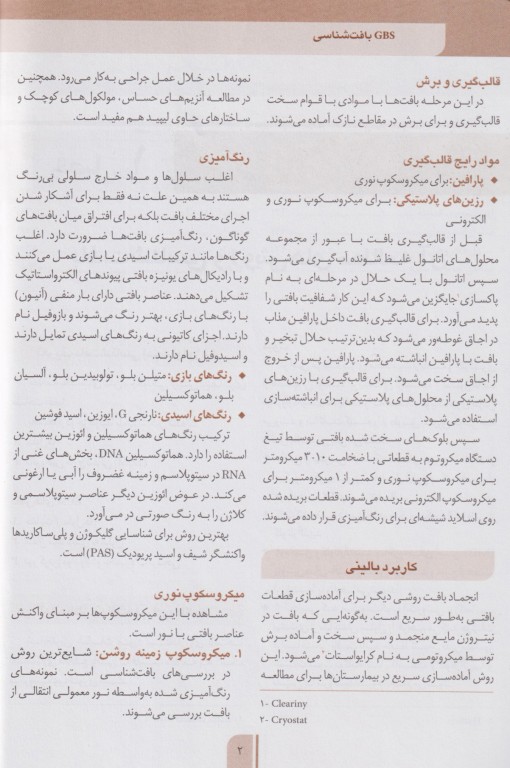 GBS بافت‌شناسی
قالب‌گیری و برش
در این مرحله بافت‌ها با موادی با قوام سخت
قالب‌گیری و برای برش در مقاطع نازک آماده می‌شوند.
مواد رایج قالب‌گیری
◆ پارافین: برای میکروسکوپ نوری
◆ رزین‌های پلاستیکی: برای میکروسکوپ نوری و
الکترونی
قبل از قالب‌گیری بافت با عبور از مجموعه
محلول‌های اتانول غلیظ شونده آب‌گیری می‌شود.
سپس اتانول با یک حلال در مرحله‌ای به نام
پاکسازی ۱جایگزین می‌شود که این کار شفافیت بافتی را
پدید می‌آورد. برای قالب‌گیری بافت داخل پارافین مذاب
در اجاق غوطه‌ور می‌شود که بدین‌ترتیب حلال تبخیر و
بافت با پارافین انباشته می‌شود. پارافین پس از خروج
از اجاق سخت می‌شود. برای قالب‌گیری با رزین‌های
پلاستیکی از محلول‌های پلاستیکی برای انباشته‌سازی
استفاده می‌شود.
سپس بلوک‌های سخت شده بافتی توسط تیغ
دستگاه میکروتوم به قطعاتی با ضخامت ۱۰-۳ میکرومتر
برای میکروسکوپ نوری و کمتر از ۱ میکرومتر برای
میکروسکوپ الکترونی بریده می‌شوند. قطعات بریده شده
روی اسلاید شیشه‌ای برای رنگ‌آمیزی قرار داده می‌شوند.
کاربرد بالینی
انجماد بافت روشی دیگر برای آماده‌سازی قطعات
بافتی به‌طور سریع است. به‌گونه‌ایی که بافت در
نیتروژن مایع منجمد و سپس سخت و آماده برش
توسط میکروتومی به نام کرایواستات۲ می‌شود. این
روش آماده‌سازی سریع در بیمارستان‌ها برای مطالعه
۱- Cleariny
۲- Cryostat
نمونه‌ها در خلال عمل جراحی به‌کار می‌رود. همچنین
در مطالعه آنزیم‌های حساس، مولکول‌های کوچک و
ساختارهای حاوی لیپید هم مفید است.
رنگ‌آمیزی
اغلب سلول‌ها و مواد خارج سلولی بی‌رنگ
هستند به همین علت نه فقط برای آشکار شدن
اجرای مختلف بافت بلکه برای افتراق میان بافت‌های
گوناگون، رنگ‌آمیزی بافت‌ها ضرورت دارد. اغلب
رنگ‌ها مانند ترکیبات اسیدی یا بازی عمل می‌کنند
و با رادیکال‌های یونیزه بافتی پیوندهای الکترواستاتیک
تشکیل می‌دهند. عناصر بافتی دارای بار منفی (آنیون)
با رنگ‌های بازی، بهتر رنگ می‌شوند و بازوفیل نام
دارند. اجزای کاتیونی به رنگ‌های اسیدی تمایل دارند
و اسیدوفیل نام دارند.
◆ رنگ‌های بازی: متیلن بلو، تولوبیدین بلو، آلسیان
بلو، هماتوکسیلین
◆ رنگ‌های اسیدی: نارنجی G، ایوزین، اسید فوشین
ترکیب رنگ‌های هماتوکسیلین و ائوزین بیشترین
استفاده را دارد. هماتوکسیلین DNA، بخش‌های غنی از
RNA در سیتوپلاسم و زمینه غضروف را آبی یا ارغونی
می‌کند. در عوض ائوزین دیگر عناصر سیتوپلاسمی و
کلاژن را به رنگ صورتی در می‌آورد.
بهترین روش برای شناسایی گلیکوژن و پلی‌ساکاریدها
واکنشگر شیف و اسید پریودیک (PAS) است.
میکروسکوپ نوری
مشاهده با این میکروسکوپ‌ها بر مبنای واکنش
عناصر بافتی با نور است.
۱. میکروسکوپ زمینه روشن: شایع‌ترین روش
در بررسی‌های بافت‌شناسی است. نمونه‌های
رنگ‌آمیزی شده به‌واسطه نور معمولی انتقالی از
بافت بررسی می‌شوند.
۲